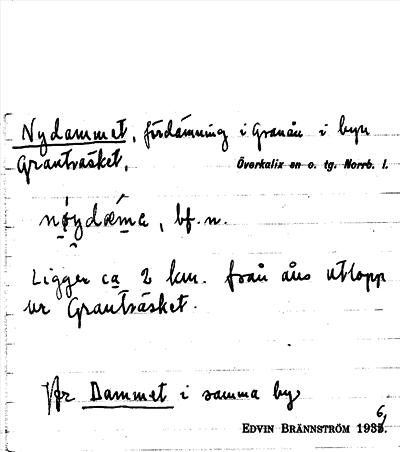 Nydammet, fördämning i Granån i byn
Granträsket, Överkalix sn o. tg. Norrb. l.
nøydæma, bf. n.
Ligger ca 2 km. från åns utlopp
ur Granträsket.
Jfr Dammet i samma by
EDVIN BRÄNNSTRÖM 1936.